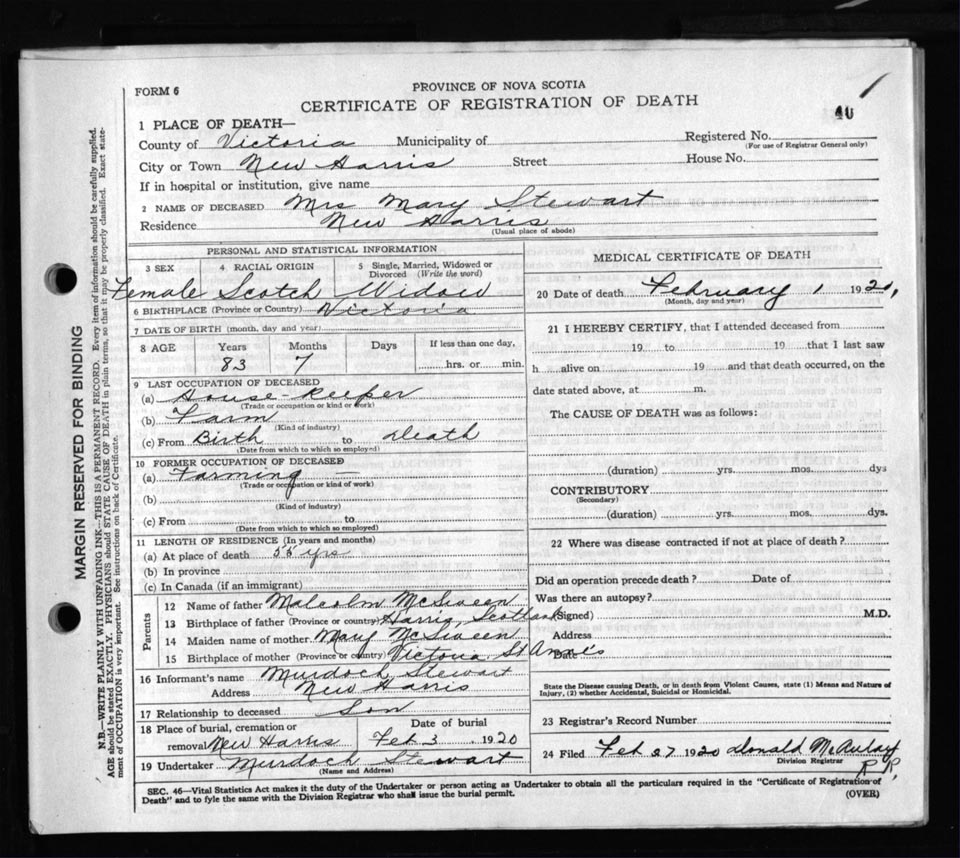 FORM 6
PROVINCE OF NOVA SCOTIA
CERTIFICATE OF REGISTRATION OF DEATH
40
1 PLACE OF DEATH—
County of Victoria Municipality of Registered No.
(For use of Registrar General only)
City or Town New Harris Street House No.
If in hospital or institution, give name
2 NAME OF DECEASED Mrs Mary Stewart
Residence New Harris
(Usual place of abode)
PERSONAL AND STATISTICAL INFORMATION
3 SEX 4 RACIAL ORIGIN 5 Single, Married, Widowed or Divorced (Write the word)
Female Scotch Widow
6 BIRTHPLACE (Province or Country) Victoria
7 DATE OF BIRTH (month, day and year)
8 AGE Years Months Days If less than one day,
83 7 hrs. or min.
9 LAST OCCUPATION OF DECEASED
(a) House-Keeper
(Trade or occupation or kind of work)
(b) Farm
(Kind of industry)
(c) From Birth to Death
(Date from which to which so employed)
10 FORMER OCCUPATION OF DECEASED
(a) Farming
(Trade or occupation or kind of work)
(b)
(Kind of industry)
(c) From to
(Date from which to which so employed)
11 LENGTH OF RESIDENCE (In years and months)
(a) At place of death 55 yrs
(b) In province
(c) In Canada (if an immigrant)
Parents
12 Name of father Malcolm McSween
13 Birthplace of father (Province or country) Harris, Scotland
14 Maiden name of mother Mary McSween
15 Birthplace of mother (Province or country) Victoria St Anne's
16 Informant's name Murdoch Stewart
Address New Harris
17 Relationship to deceased Son
18 Place of burial, cremation or removal New Harris
Date of burial Feb 3 1920
19 Undertaker Murdoch Stewart
(Name and Address)
MEDICAL CERTIFICATE OF DEATH
20 Date of death February 1 1920,
(Month, day and year)
21 I HEREBY CERTIFY, that I attended deceased from
19 to 19 that I last saw
h alive on 19 and that death occurred, on the
date stated above, at m.
The CAUSE OF DEATH was as follows:
(duration) yrs. mos. dys
CONTRIBUTORY
(Secondary)
(duration) yrs. mos. dys.
22 Where was disease contracted if not at place of death?
Did an operation precede death? Date of
Was there an autopsy?
(Signed) M.D.
Address
Date
State the Disease causing Death, or in death from Violent Causes, state (1) Means and Nature of
Injury, (2) whether Accidental, Suicidal or Homicidal.
23 Registrar's Record Number
24 Filed Feb 27 1920 Donald McAulay
Division Registrar
SEC. 46—Vital Statistics Act makes it the duty of the Undertaker or person acting as Undertaker to obtain all the particulars required in the "Certificate of Registration of
Death" and to fyle the same with the Division Registrar who shall issue the burial permit. (OVER)
MARGIN RESERVED FOR BINDING
N.B.—WRITE PLAINLY WITH UNFADING INK—THIS IS A PERMANENT RECORD. Every item of information should be carefully supplied.
AGE should be stated EXACTLY. PHYSICIANS should STATE CAUSE OF DEATH in plain terms, so that it may be properly classified. Exact state-
ment of OCCUPATION is very important. See instructions on back of Certificate.